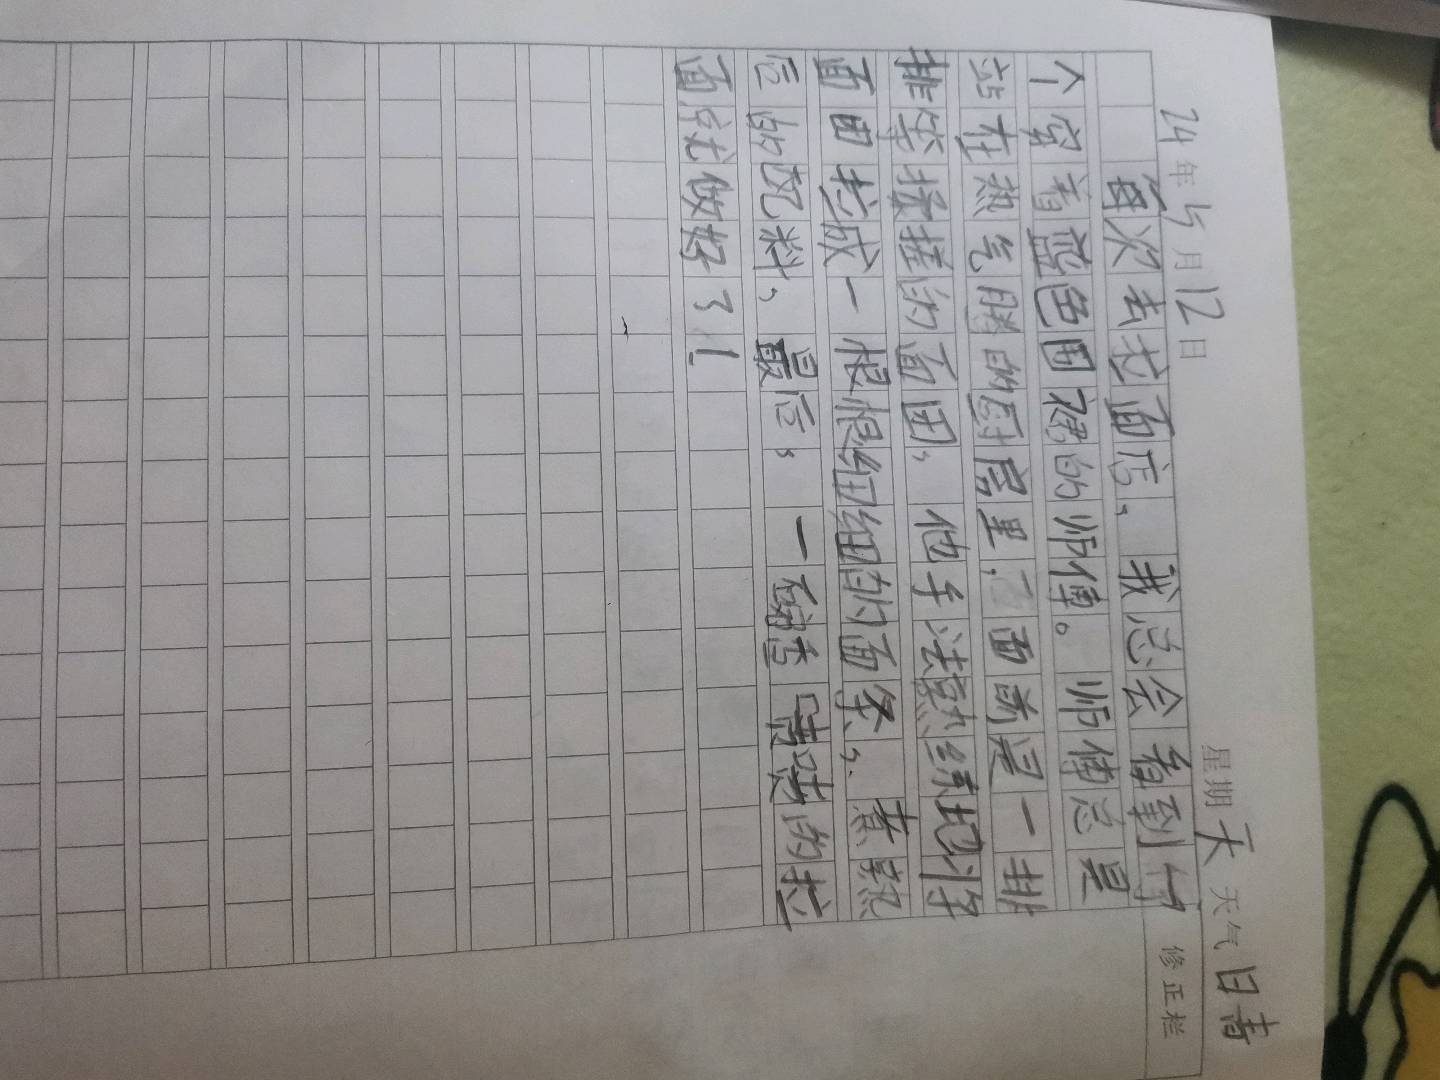 24年5月12日 星期天 天气晴
修正栏
每次去拉面店，我总会看到
个穿着蓝色围裙的师傅。师傅总是
站在热气腾的厨房里，面前是一排
排等揉搓的面团，他手法熟练地将
面团拉成一根根细细的面条，煮熟
后的配料，最后，一碗香喷喷的拉
面就做好了！